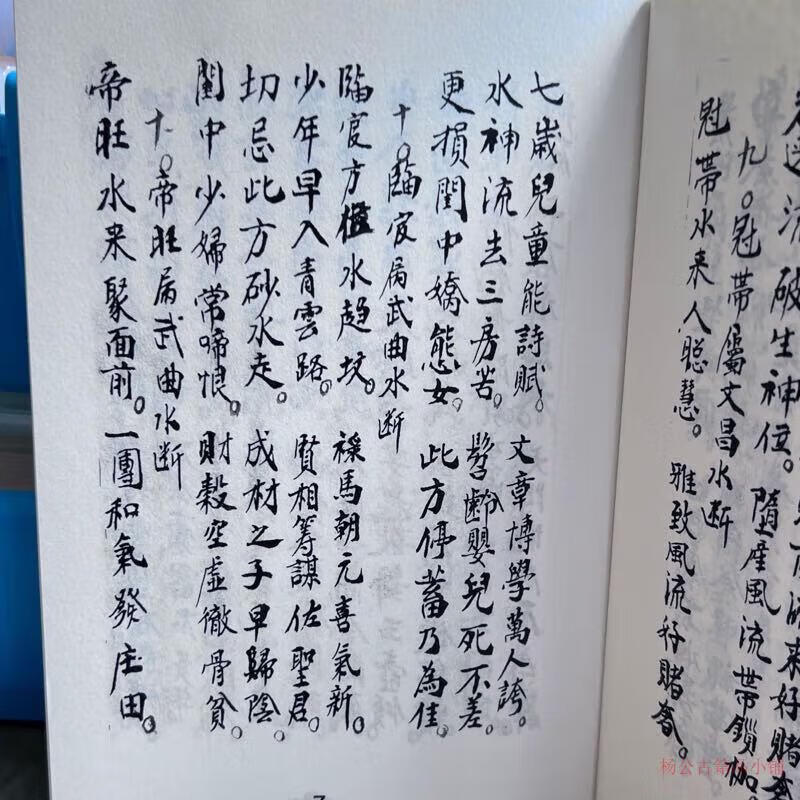 逆流破生神位。
来好賭奢
九。冠帶屬文昌水断
墮産風流帶鎖枷。
冠帶水来人聪慧。雅致風流好賭奢。
七歲兒童能詩賦。文章博學萬人誇。
水神流去三房苦。髫齡嬰兒死不差。
更損閨中嬌態女。此方停蓄乃為佳。
十。臨官属武曲水断
臨官方位水趋坟。禄馬朝元喜氣新。
少年早入青雲路。賢相筹謀佐聖君。
切忌此方砂水走。成材之子早歸陰。
閨中少婦常啼恨。財穀空虛徹骨貧。
十一。帝旺属武曲水断
帝旺水来聚面前。一團和氣發庄田。
7
杨公古籍小铺